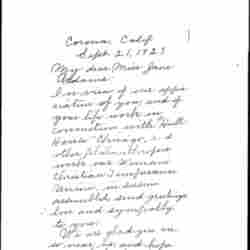 Corona, Calif
Sept 21, 1923
My dear Miss Jane
Addams:
In view of our appre
ciation of you and of
your life work in
connection with Hull
House Chicago, and
other
work our Woman's
Christian Temperance
Union, in session
assembled send greetings
love and sympathy
to you.
We are glad you are
so near us and hope